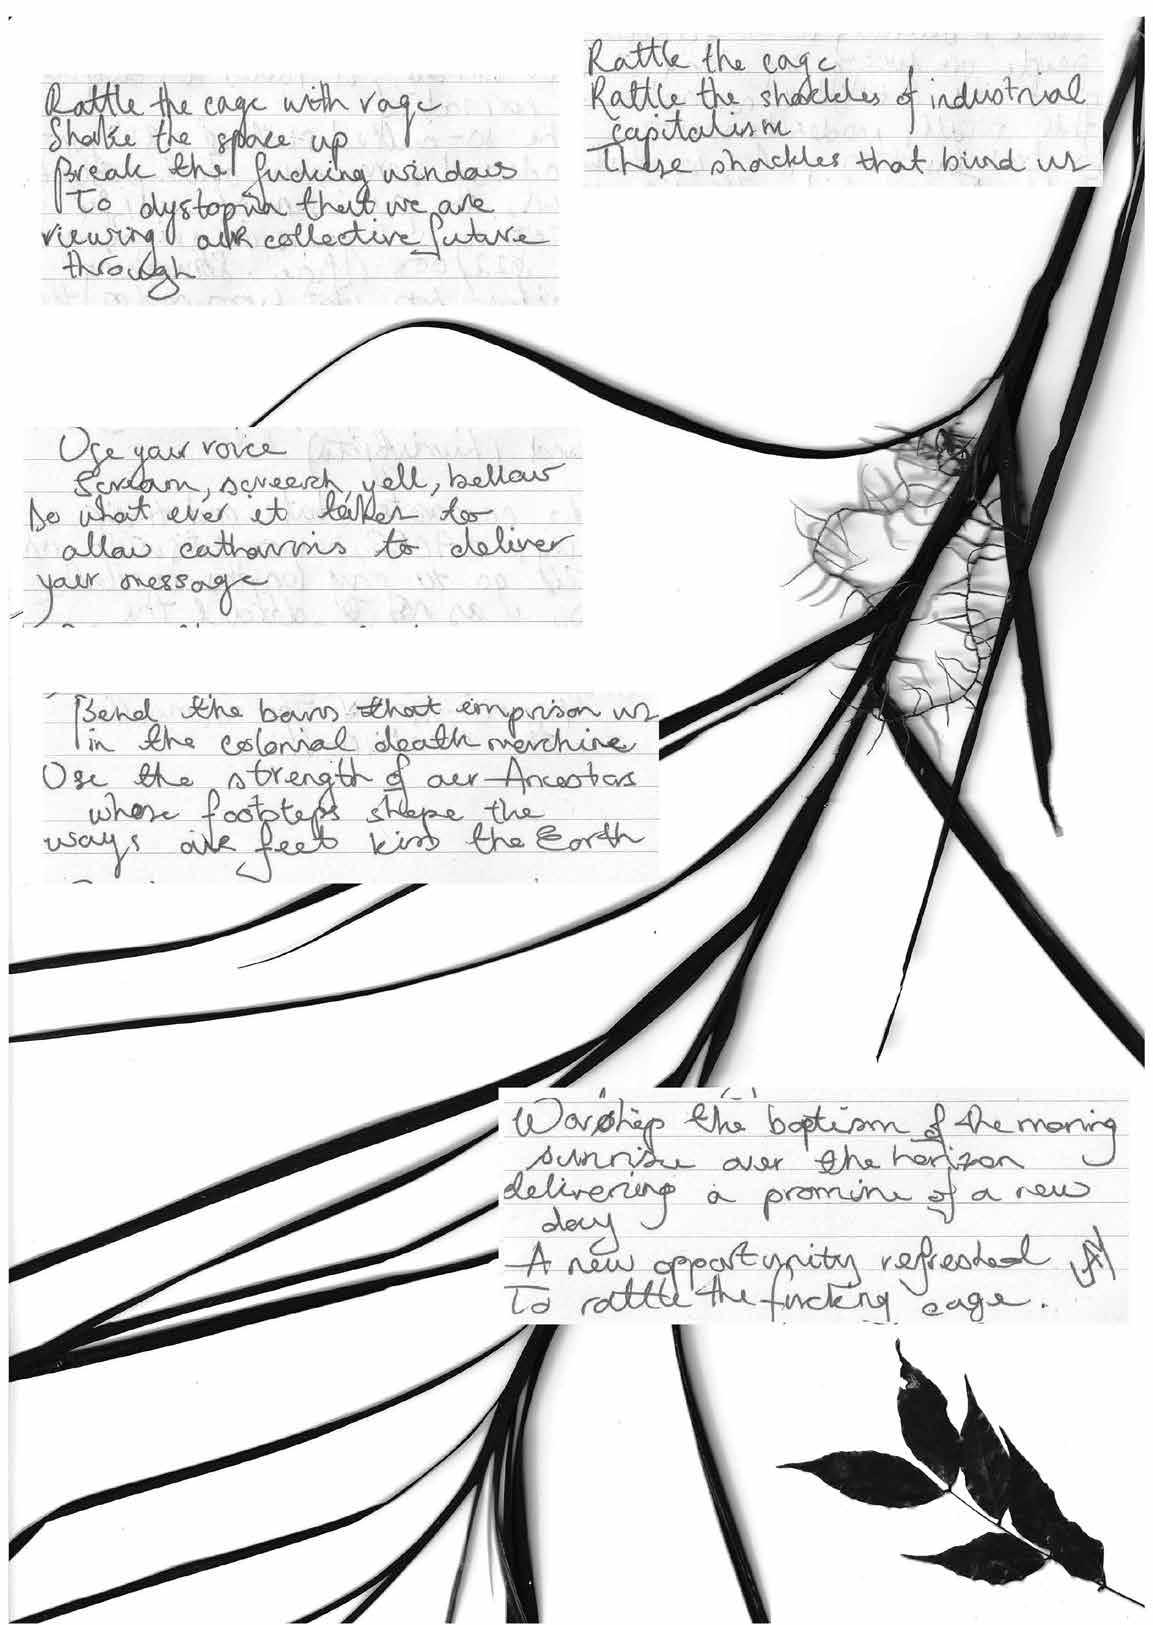 Rattle the cage with rage
Shake the space up
Break the fucking windows
To dystopia that we are
viewing our collective future
through
Rattle the cage
Rattle the shackles of industrial
capitalism
These shackles that bind us
Use your voice
Scream, screech, yell, bellow
Do what ever it takes to
allow catharsis to deliver
your message
Bend the bars that imprison us
in the colonial death machine
Use the strength of our Ancestors
whose footsteps shape the
ways our feet kiss the Earth
Worship the baptism of the morning
sunrise over the horizon
delivering a promise of a new
day
A new opportunity refreshed
To rattle the fucking cage.